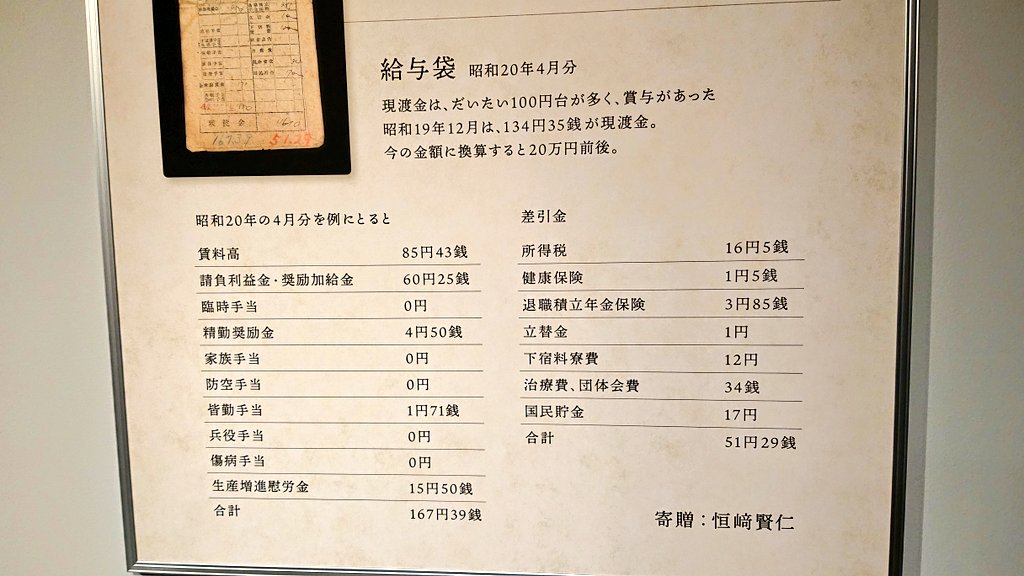 給与袋 昭和20年4月分
現渡金は、だいたい100円台が多く、賞与があった
昭和19年12月は、134円35銭が現渡金。
今の金額に換算すると20万円前後。
昭和20年の4月分を例にとると
賃料高 85円43銭
請負利益金・奨励加給金 60円25銭
臨時手当 0円
精勤奨励金 4円50銭
家族手当 0円
防空手当 0円
皆勤手当 1円71銭
兵役手当 0円
傷病手当 0円
生産増進慰労金 15円50銭
合計 167円39銭
差引金
所得税 16円5銭
健康保険 1円5銭
退職積立年金保険 3円85銭
立替金 1円
下宿料寮費 12円
治療費、団体会費 34銭
国民貯金 17円
合計 51円29銭
寄贈：恒﨑賢仁
167.39
51.29